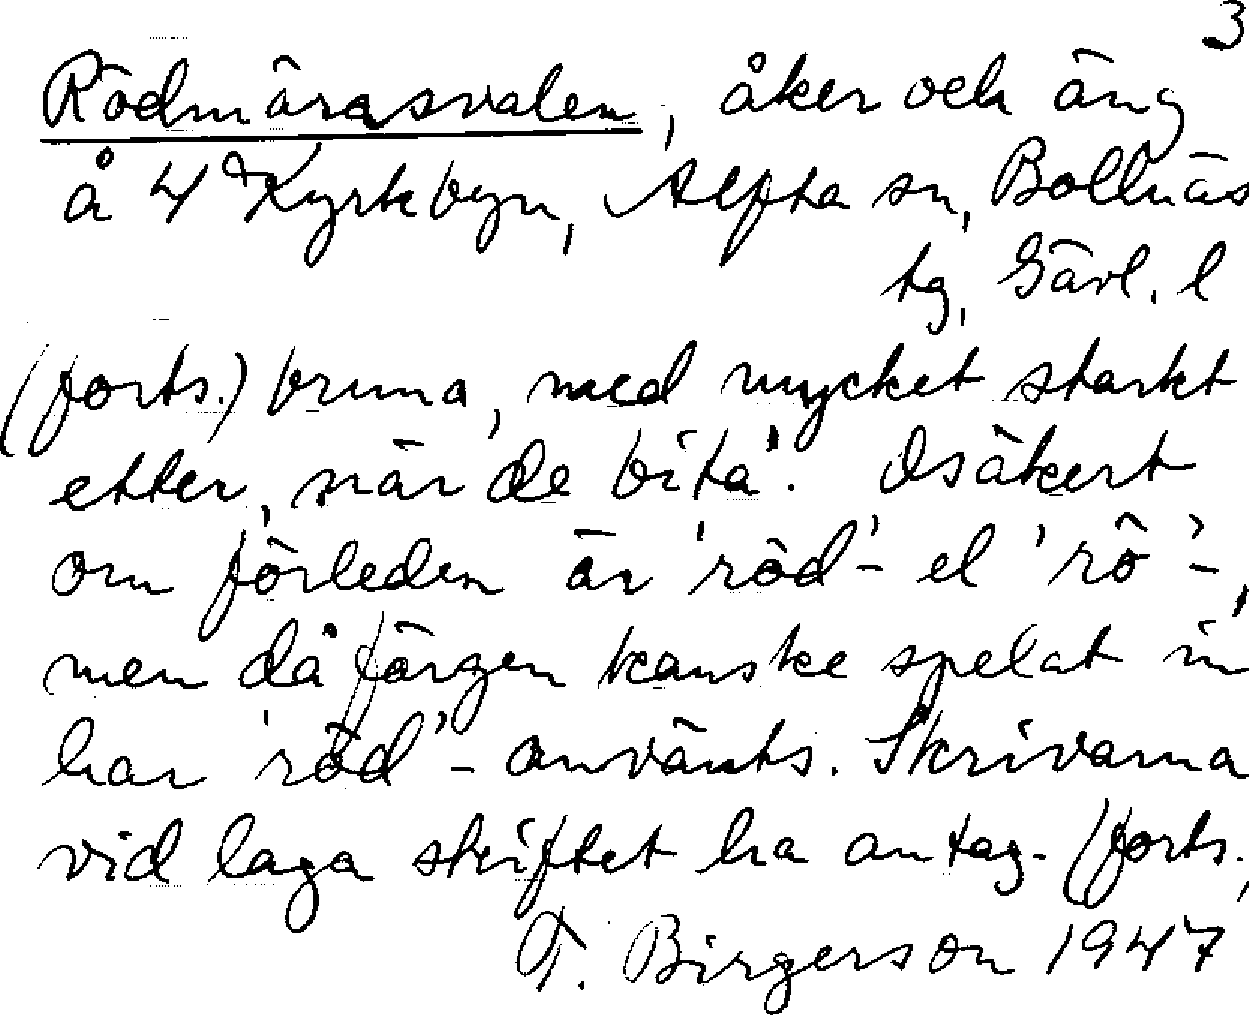 3
Rödmärasvalen, åker och äng
å 4 Kyrkbyn, Alfta sn, Bollnäs
tg, Gävl. l
(forts.) bruna, med mycket starkt
etter, när de bita". Osäkert
om förleden är 'röd'- el 'rö'-,
men då färgen kanske spelat in
har 'röd'- använts. Skrivarna
vid laga skiftet ha antag- (forts.,
T. Birgerson 1947